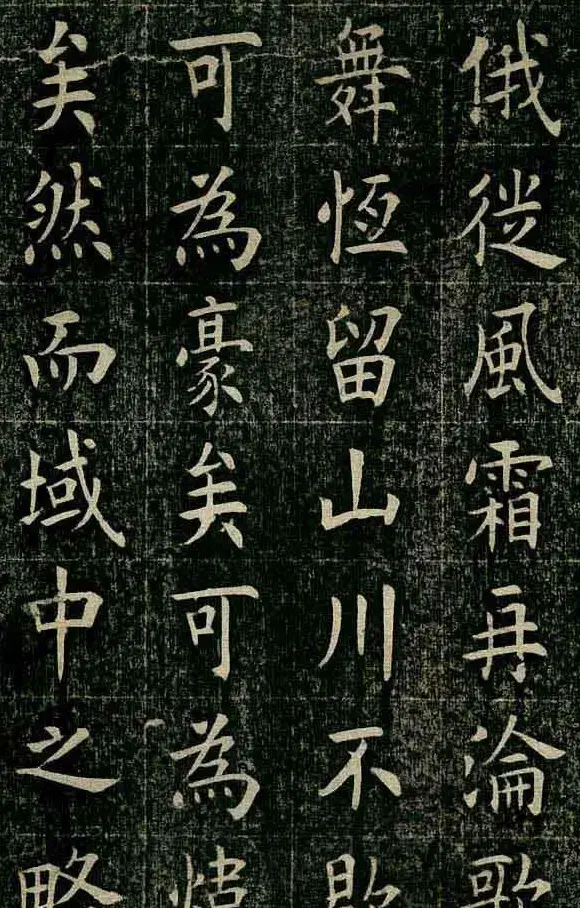 俄徙風霜再淪歌
舞恆留山川不
可為豪矣可為
矣然而域中之略